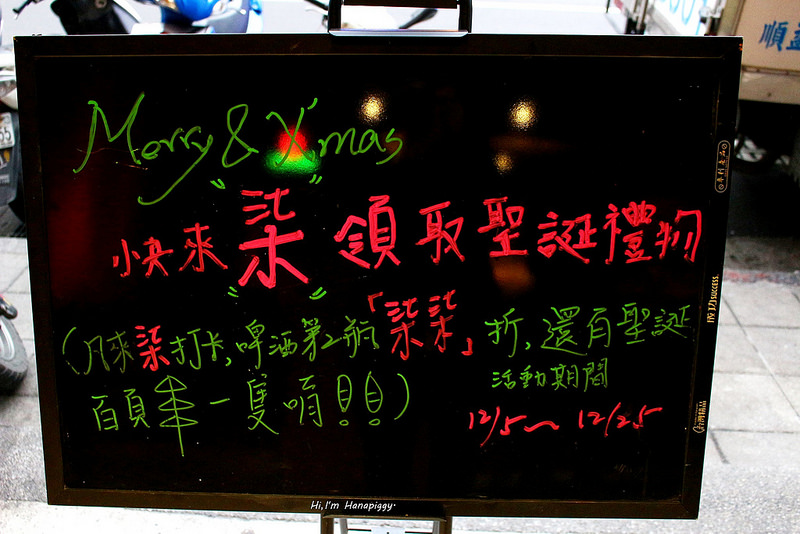 Merry & X'mas
快來"柒"領取聖誕禮物
(凡來柒打卡,啤酒第2瓶「柒柒」折,還有聖誕
百頁串一隻唷!!)
活動期間
12/5~12/25
成功SUCCESS.
Hi, I'm Hanapiggy.
順